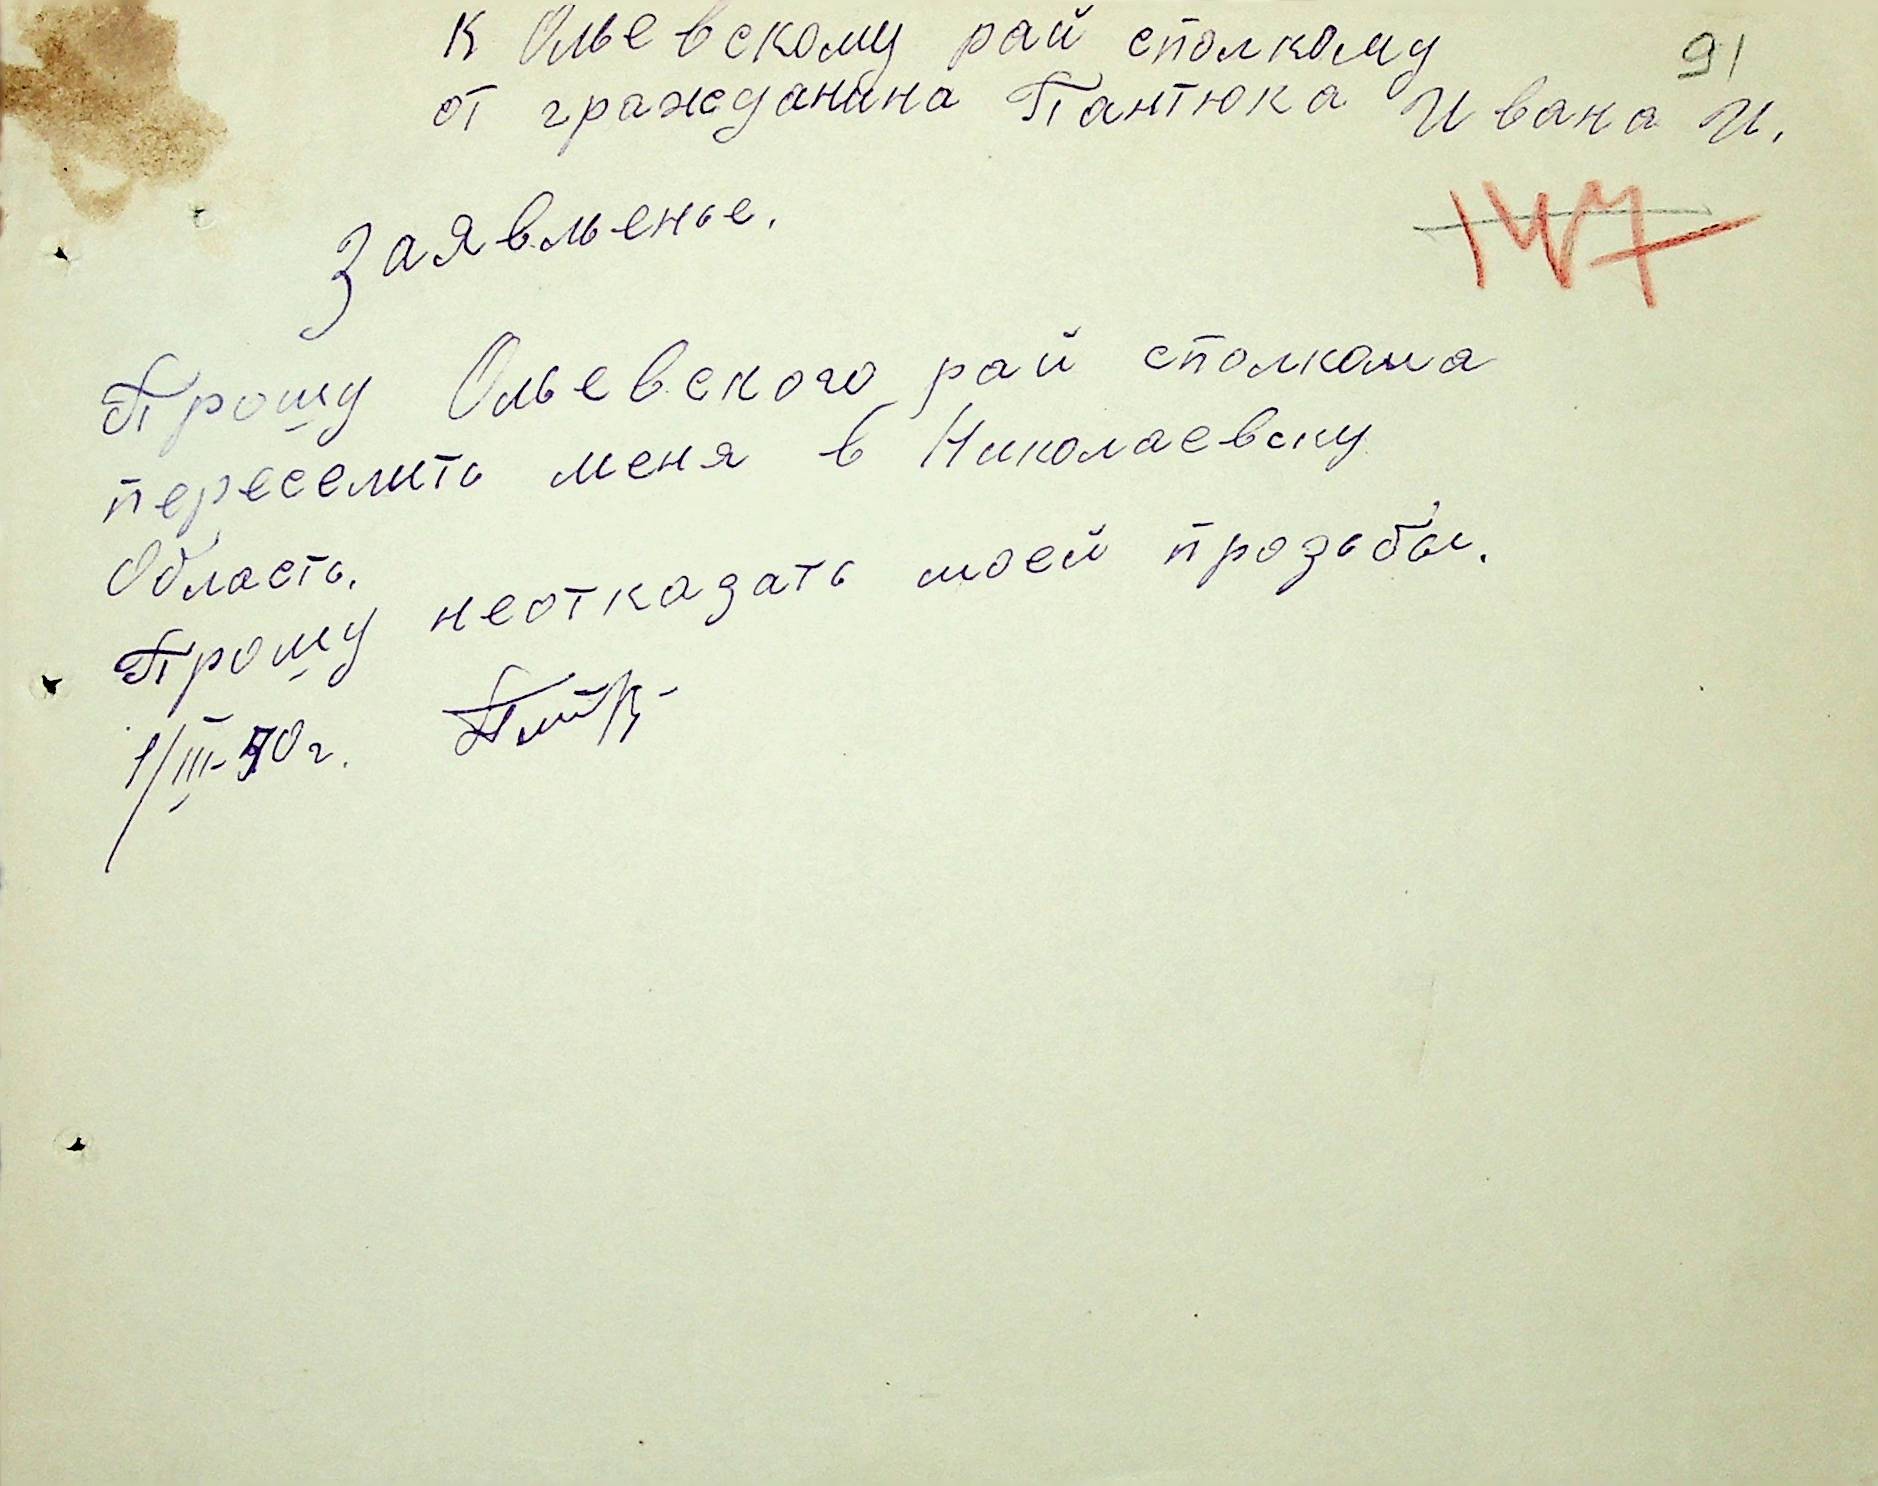 К Ольевскому рай сполкому
91
от гражданина Пантюка Ивана И.
147
Заявленье.
Прошу Ольевского рай сполкома
переселить меня в Николаевску
Область.
Прошу неотказать моей прозьбы.
1/III-50 г.